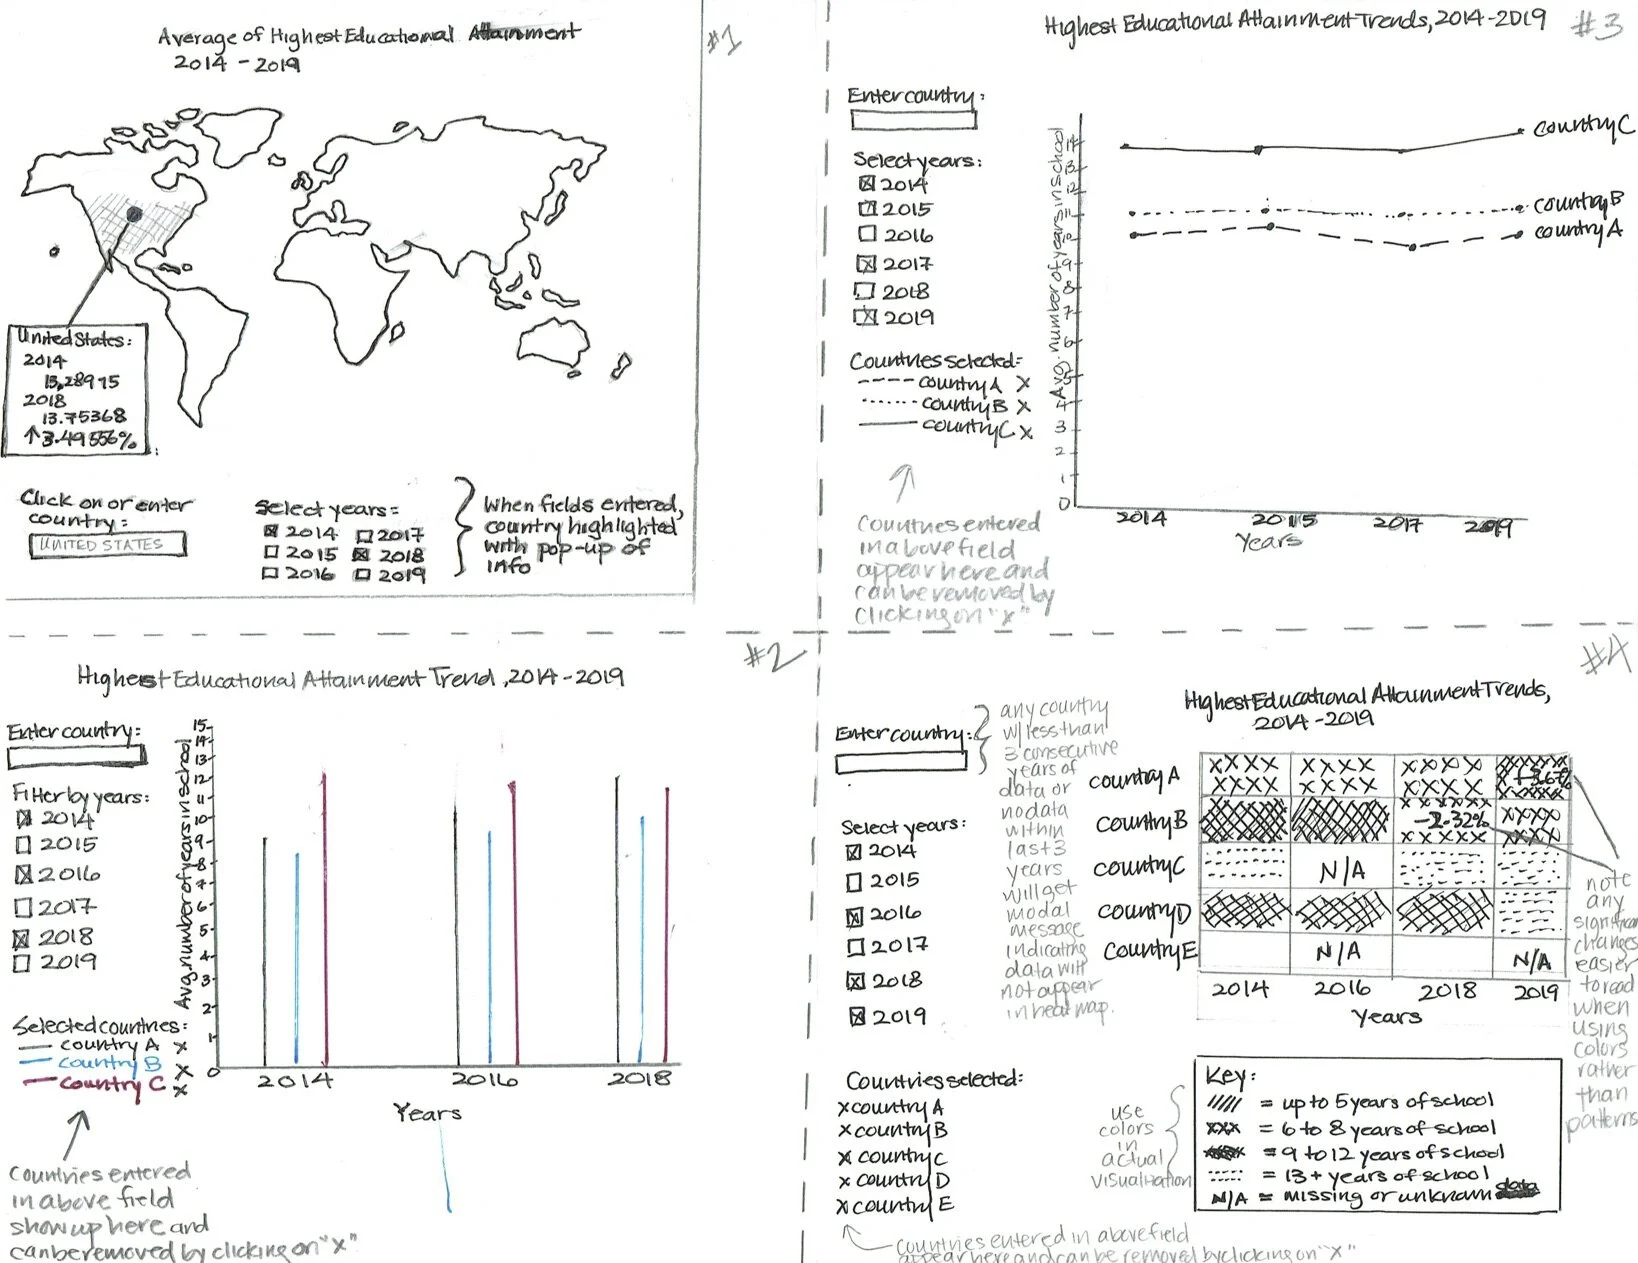 Average of Highest Educational Attainment
2014 - 2019
#1
United States:
2014
13.28975
2018
13.75368
↑3.49556%
Click on or enter
country:
UNITED STATES
Select years:
2014
2017
2015
2018
2016
2019
When fields entered,
country highlighted
with pop-up of
info
Highest Educational Attainment Trends, 2014-2019
#3
Enter country:
Select years:
2014
2015
2016
2017
2018
2019
Countries selected:
country A X
country B X
country C X
Countries entered
in above field
appear here and
can be removed by
clicking on "x"
Avg. number of years in school
14
13
12
11
10
9
8
7
6
5
4
3
2
1
0
country C
country B
country A
2014
2015
2017
2019
Years
#2
Highest Educational Attainment Trend, 2014-2019
Enter country:
Filter by years:
2014
2015
2016
2017
2018
2019
Selected countries:
country A X
country B X
country C X
Countries entered
in above field
show up here and
can be removed by clicking on "x"
Avg. number of years in school
15
14
13
12
11
10
9
8
7
6
5
4
3
2
1
0
2014
2016
2018
Years
#4
Highest Educational Attainment Trends,
2014-2019
Enter country:
any country
w/ less than
3 consecutive
years of
data or
no data
within
last 3
years
will get
modal
message
indicating
data will
not appear
in heat map.
Select years:
2014
2015
2016
2017
2018
2019
country A
country B
-2.32%
country C
N/A
country D
country E
N/A
N/A
2014
2016
2018
2019
Years
note
any
significant
changes
easier
to read
when
using
colors
rather
than
patterns
Countries selected:
x country A
x country B
x country C
x country D
x country E
Countries entered in above field
appear here and can be removed by clicking on "x"
use
colors
in
actual
visualization
Key:
= up to 5 years of school
= 6 to 8 years of school
= 9 to 12 years of school
= 13+ years of school
N/A = missing or unknown